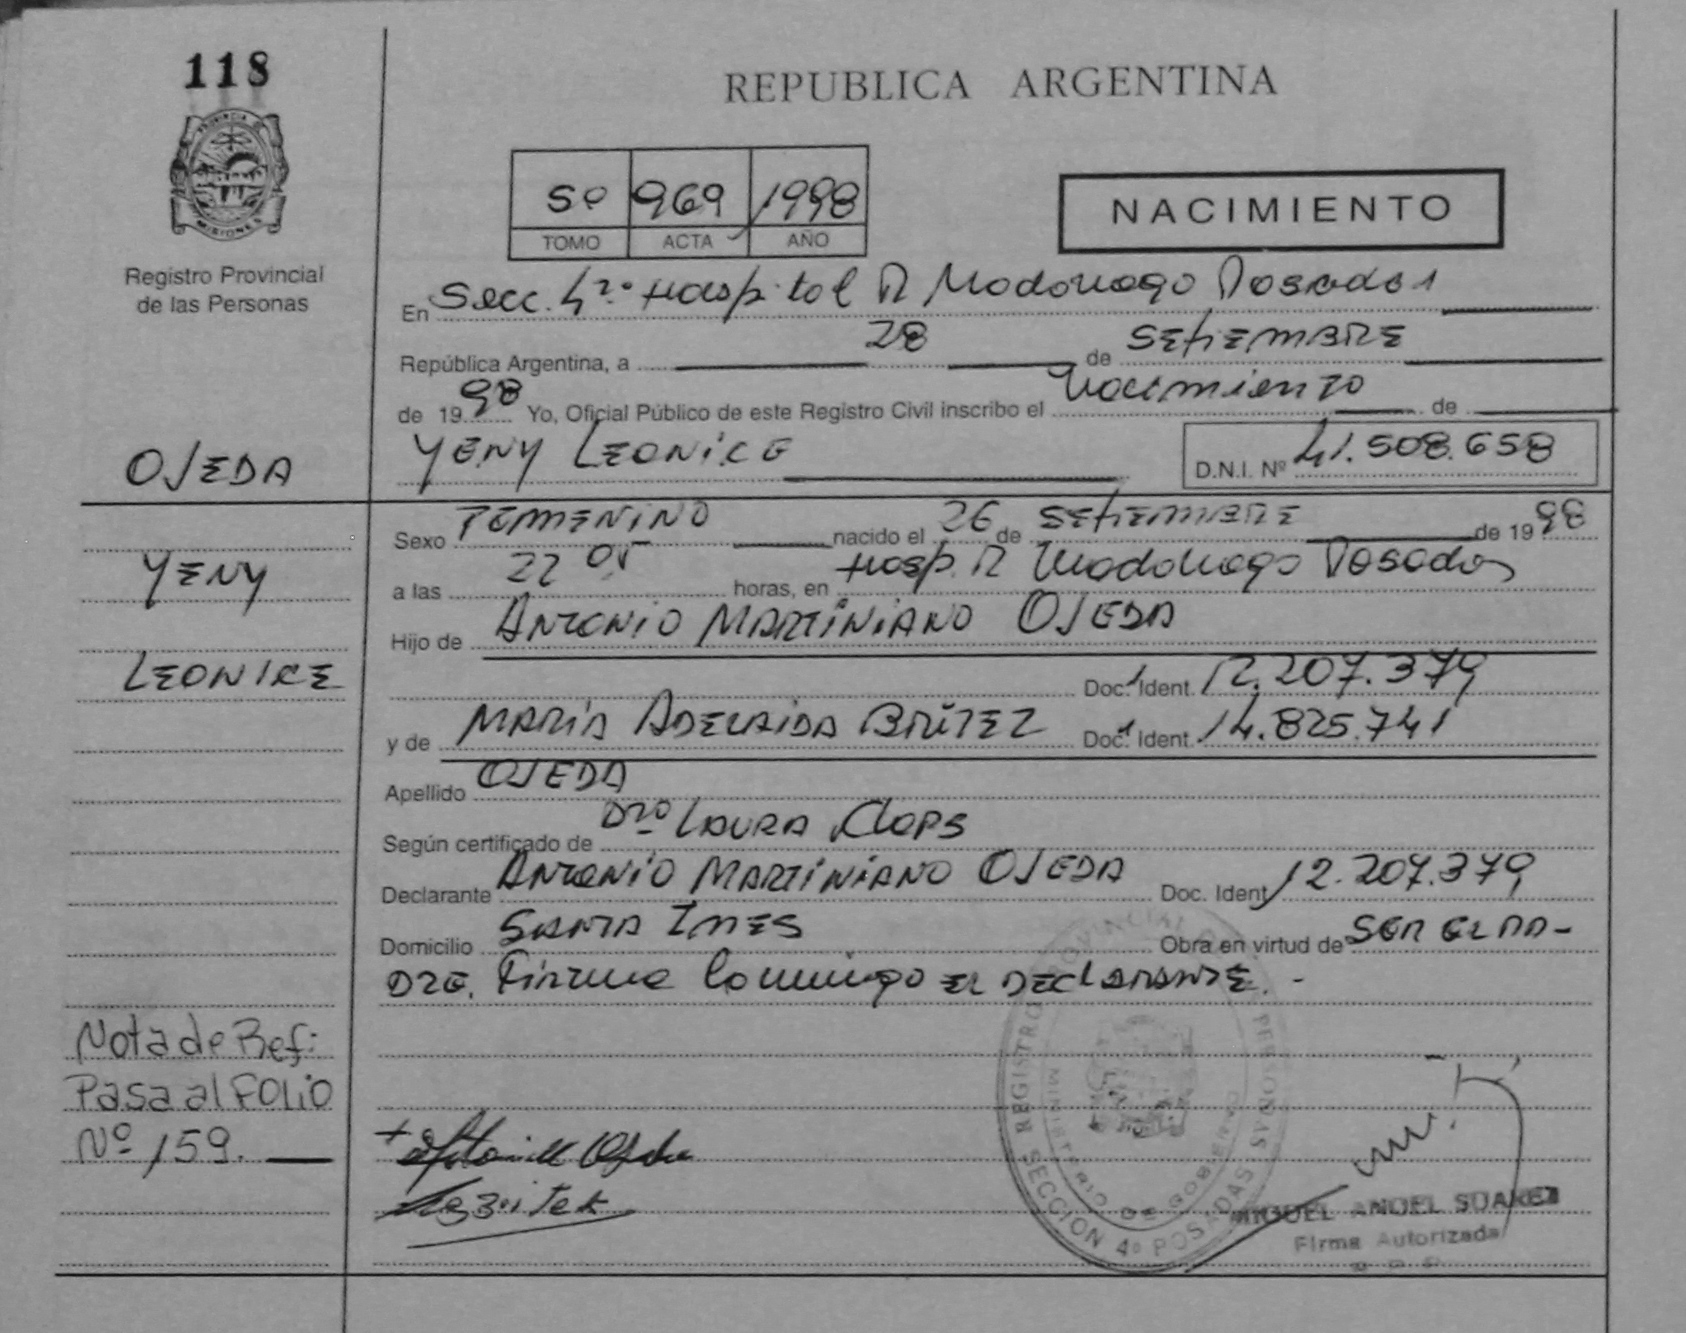 118
REPUBLICA ARGENTINA
PROVINCIA DE
MISIONES
Registro Provincial
de las Personas
5º 969 1998
TOMO ACTA AÑO
NACIMIENTO
En Secc. 4ta. Hospital R Madariaga Posadas
República Argentina, a 28 de SEtiEMBRE
de 1998 Yo, Oficial Público de este Registro Civil inscribo el Nacimiento de
YENY LEONICE D.N.I. Nº 41.508.658
OJEDA
YENY
LEONICE
Sexo FEMENINO nacido el 26 de SEtiEMBRE de 1998
a las 22 05 horas, en Hosp. R Madariaga Posadas
Hijo de ANTONIO MARTINIANO OJEDA
Doc. Ident. 12.207.379
y de MARÍA ADELAIDA BRÍTEZ Doc. Ident. 14.825.741
Apellido OJEDA
Según certificado de Dra LAURA
Declarante ANTONIO MARTINIANO OJEDA Doc. Ident 12.207.379
Domicilio SANTA INES Obra en virtud de SER EL PA-
DRE. Firma Conmigo EL DECLARANTE. -
Nota de Ref:
Pasa al FOLIO
Nº 159.
REGISTRO PROVINCIAL DE PERSONAS
MINISTERIO DE GOBIERNO
SECCION 4º POSADAS
MIGUEL ANGEL SUAREZ
Firma Autorizada